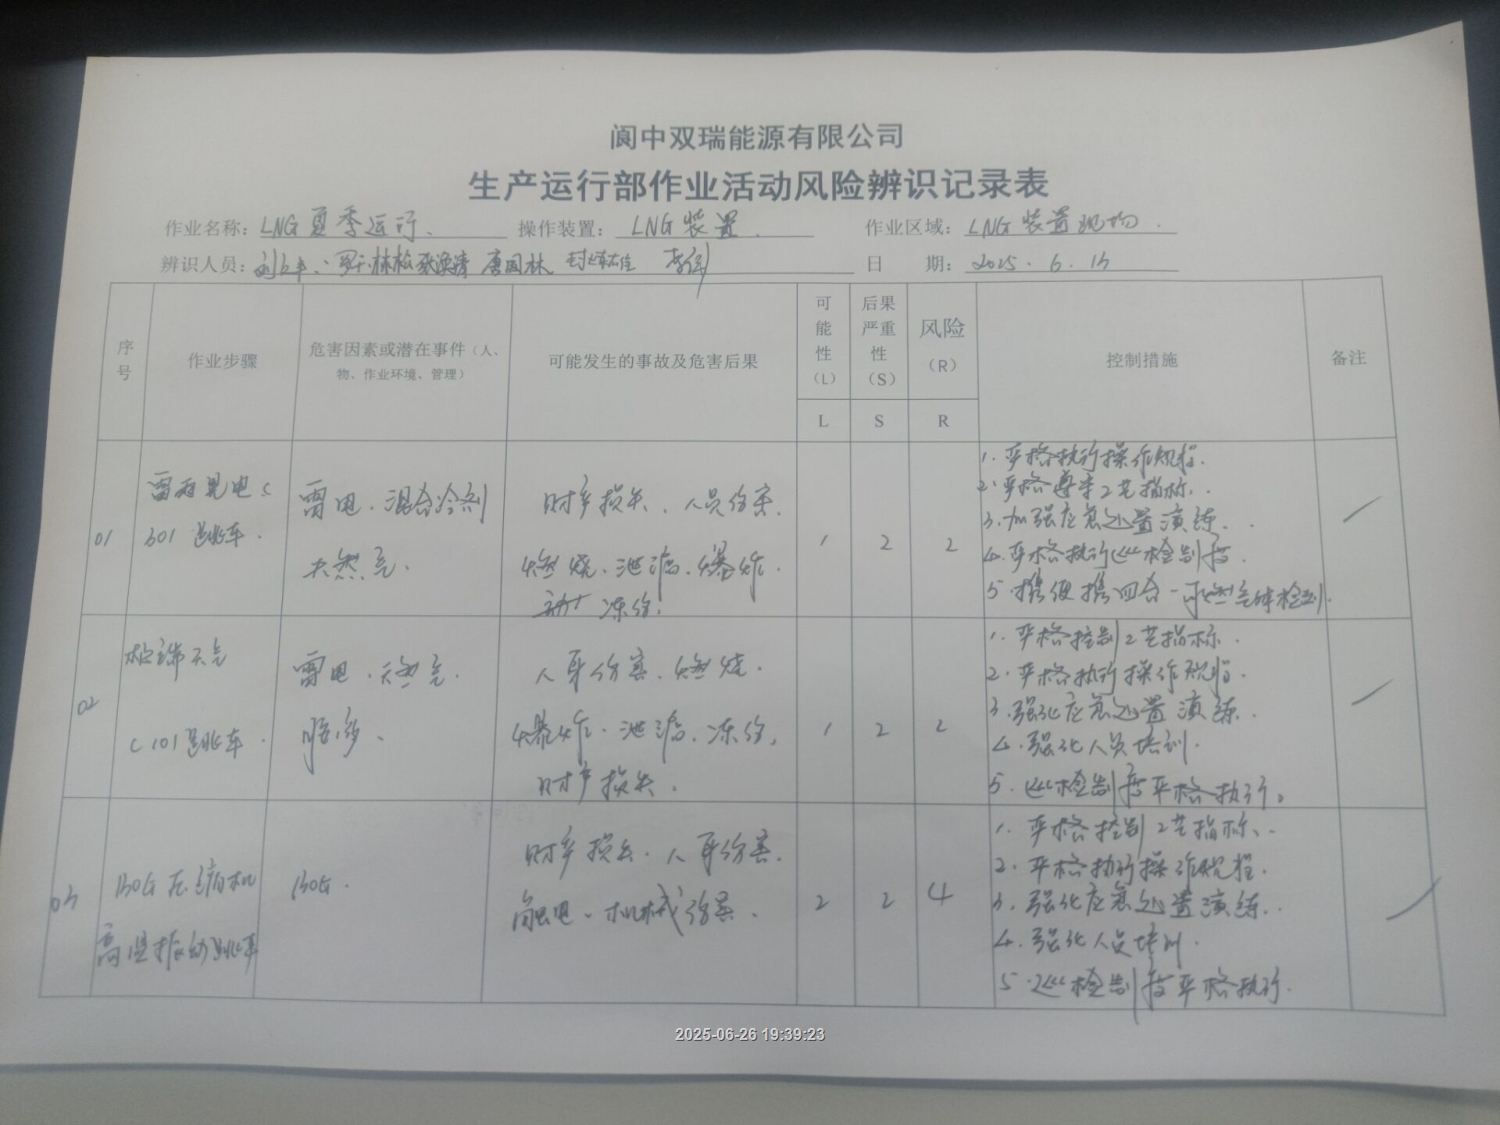 阆中双瑞能源有限公司
生产运行部作业活动风险辨识记录表
作业名称：LNG夏季运行. 操作装置：LNG装置. 作业区域：LNG装置现场.
辨识人员： 唐国林 日 期：2025.6.15
序号 作业步骤 危害因素或潜在事件（人、物、作业环境、管理） 可能发生的事故及危害后果 可能性（L） 后果严重性（S） 风险（R） 控制措施 备注
L S R
01 雷雨晃电C301跳车. 雷电.混合冷剂 天然气.
财产损失.人员伤害.
燃烧.泄漏.爆炸.
冻伤.
1 2 2
1.严格执行操作规程.
2.严格遵守工艺指标.
3.加强应急处置演练.
4.严格执行巡检制度.
5.携便携四合一可燃气体检测.
02 极端天气
C101跳车.
雷电.天然气.
胺液.
人身伤害.燃烧.
爆炸.泄漏.冻伤,
财产损失.
1 2 2
1.严格控制工艺指标.
2.严格执行操作规程.
3.强化应急处置演练.
4.强化人员培训.
5.巡检制度严格执行。
03 BOG压缩机
高温振动跳车
BOG.
财产损失.人身伤害.
触电.机械伤害.
2 2 4
1.严格控制工艺指标.
2.严格执行操作规程.
3.强化应急处置演练.
4.强化人员培训.
5.巡检制度严格执行.
2025-06-26 19:39:23